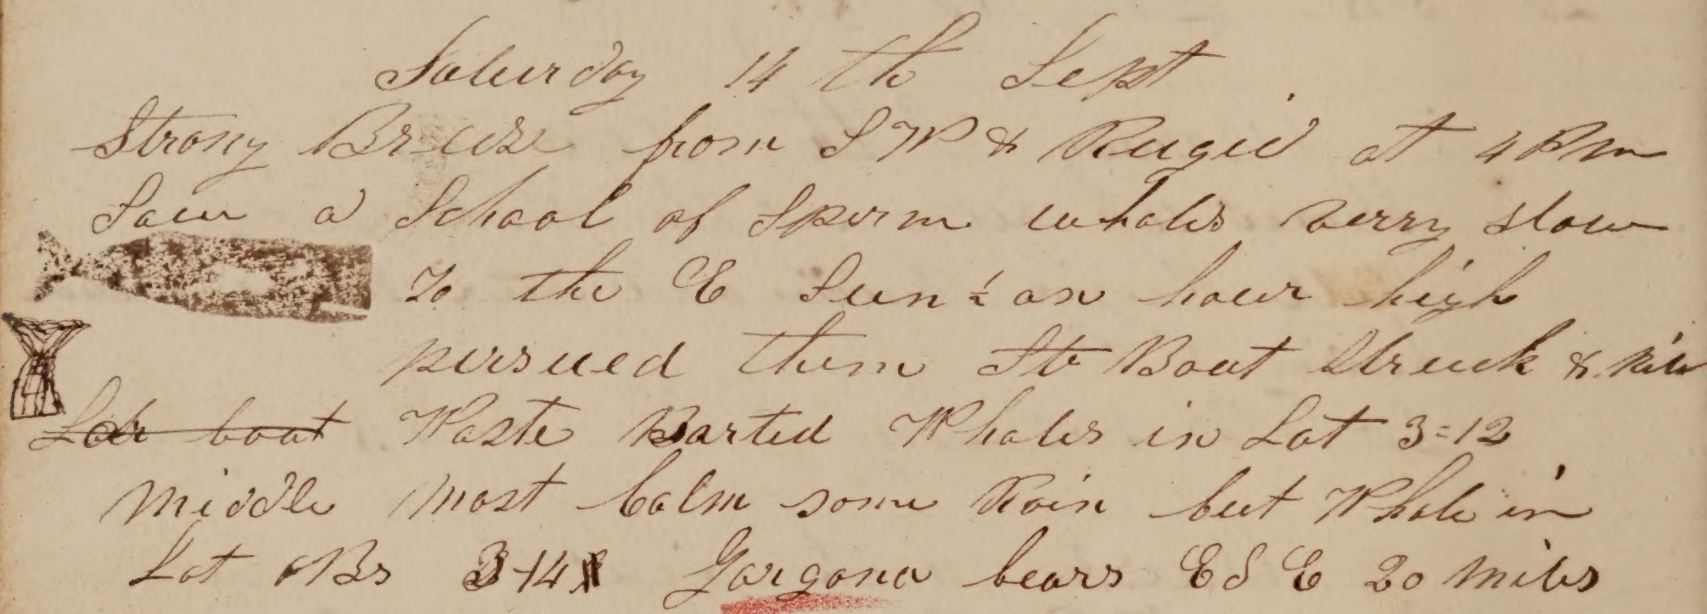 Saturday 14 th Sept
Strong Breeze from S W & Ruged at 4 Pm
Saw a School of Sperm whales verry slow
To the E Sun ½ an hour high
persued them St B Boat Struck &
Lar boat Waste Barted Whales in Lat 3=12
Middle Most Calm some Rain but Whale in
Lat Obs 3-14 Gorgona bears E S E 20 miles